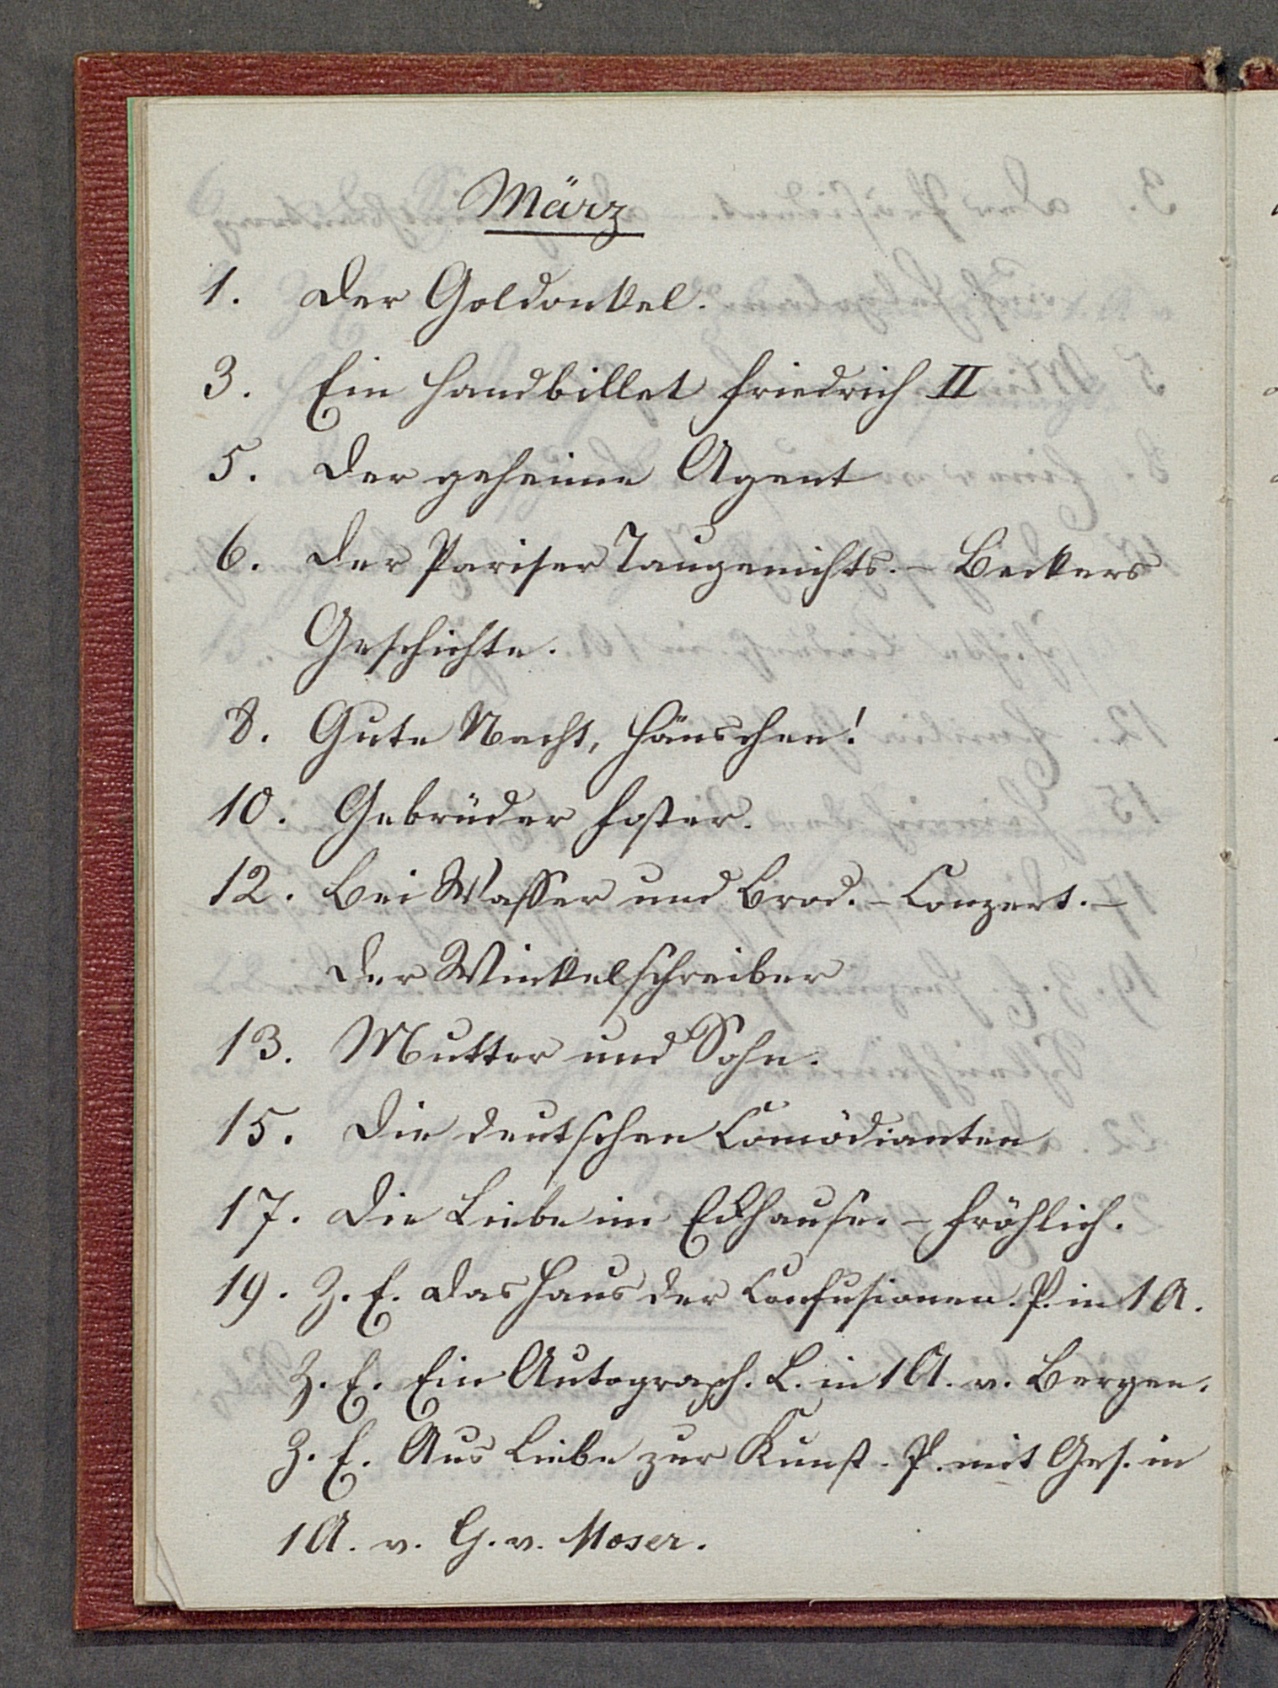 März
1. Der Goldonkel.
3. Ein Handbillet Friedrich II
5. Der geheime Agent
6. Der Pariser Taugenichts. – Beckers
Geschichte.
8. Gute Nacht, Hänschen!
10. Gebrüder Foster.
12. Bei Wasser und Brod. – Conzert. –
Der Winkelschreiber
13. Mutter und Sohn.
15. Die deutschen Comödianten
17. Die Liebe im Eckhause. – Fröhlich.
19. Z. E. Das Haus der Confusionen. P. in 1 A.
Z. E. Ein Autograph. L. in 1 A. v. Bergen.
Z. E. Aus Liebe zur Kunst. P. mit Ges. in
1 A. v. G. v. Moser.